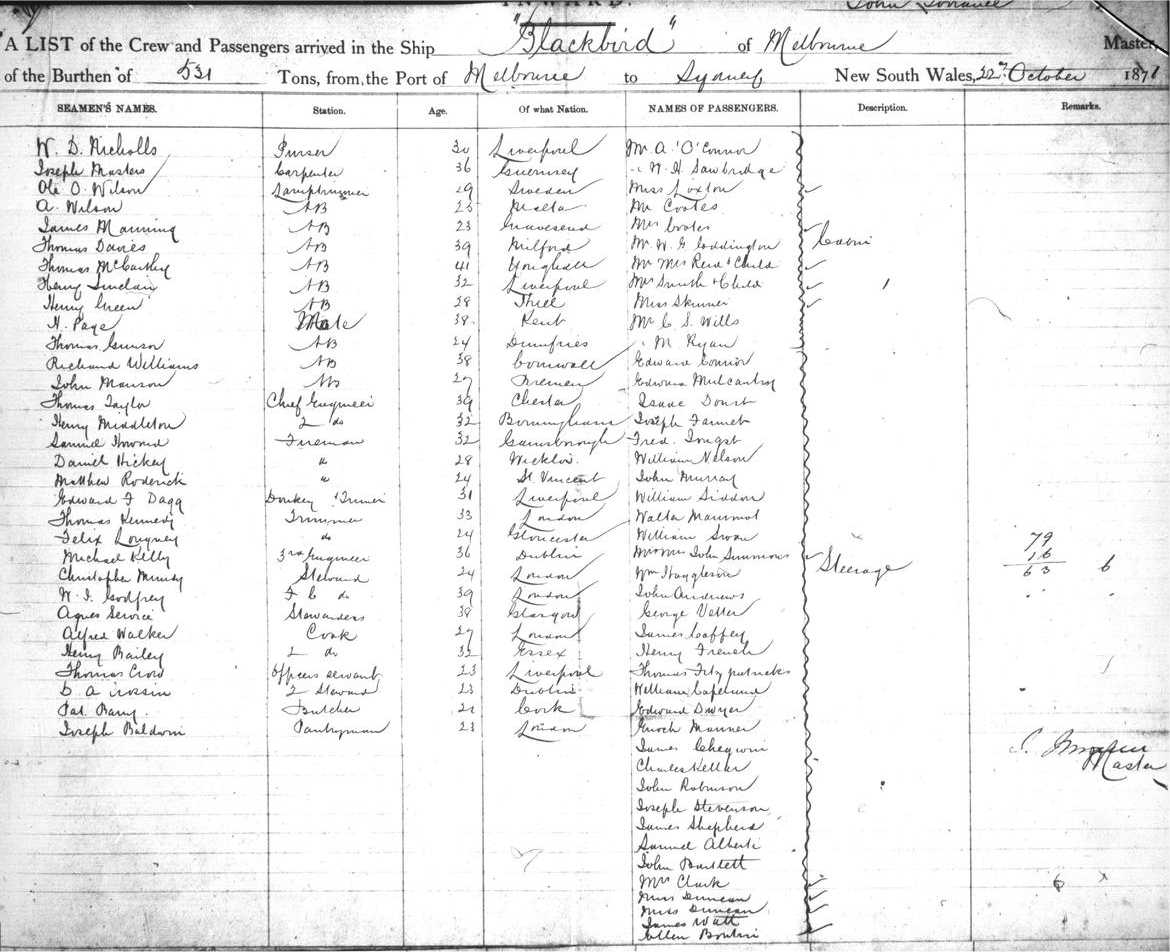 INWARD.
"A LIST of the Crew and Passengers arrived in the Ship "Blackbird" of Melbourne Master,
of the Burthen of 531 Tons, from the Port of Melbourne to Sydney New South Wales, 22nd October 1871
SEAMEN'S NAMES. Station. Age. Of what Nation. NAMES OF PASSENGERS. Description. Remarks.
W. D. Nicholls Purser 30 Liverpool Mr A. O'Connor
Joseph Masters Carpenter 36 Guernsey " W. H. Sawbridge
Ole O. Wilson Lamptrimmer 29 Sweden Miss Loxton
A. Wilson AB 25 Malta Mr Cootes
James Manning AB 23 Gravesend Mrs Cootes
Thomas Davies AB 39 Milford Mr W. G Coddington Cabin
Thomas McCarthy AB 41 Youghall Mr Mrs Reid & Child
Henry Sinclair AB 32 Liverpool Mrs Smith & Child
Henry Green AB 28 Miss Skinner
H. Page Mate 38 Kent Mr C. S. Wills
Thomas Gunson AB 24 Dumfries " M. Ryan
Richard Williams AB 38 Cornwall Edward Connor
John Manson AB 27 Edward Mulcahy
Thomas Taylor Chief Engineer 39 Chester Isaac
Henry Middleton 2 do 32 Birmingham Joseph
Samuel Howard Fireman 32 Gainsborough Fred.
Daniel Hickey " 28 Wicklow William Nelson
Matthew Roderick " 24 St. Vincent John Murray
Edward F Dagg Donkey Trimer 31 Liverpool William Siddon
Thomas Kennedy Trimmer 33 London Walter
Felix do 24 Gloucester William Swan
Michael Kelly 3rd Engineer 36 Dublin Mr & Mrs John Simmons Steerage
Christopher Steward 24 London Wm
W. J. Godfrey F C do 39 London John Andrews
Agnes Service Stewardess 38 Glasgow George Vetter
Alfred Walker Cook 27 London James Caffey
Henry Bailey 2 do 32 Essex Henry French
Thomas Crow Officers servant 23 Liverpool Thomas Fitzpatrick
2 Steward 23 Dublin William Copeland
Pat. Barry Butcher 21 Cork Edward Dwyer
Joseph Baldwin Pantryman 23 London Enoch Manner
James Chegwin
Charles Keller
John Robinson
Joseph Stevenson
James Shepherd
Samuel Alberti
John Bartlett
Mrs Clark
Miss Duncan
Miss Duncan
James Watt
Ellen
79
16
63 6
Master
6